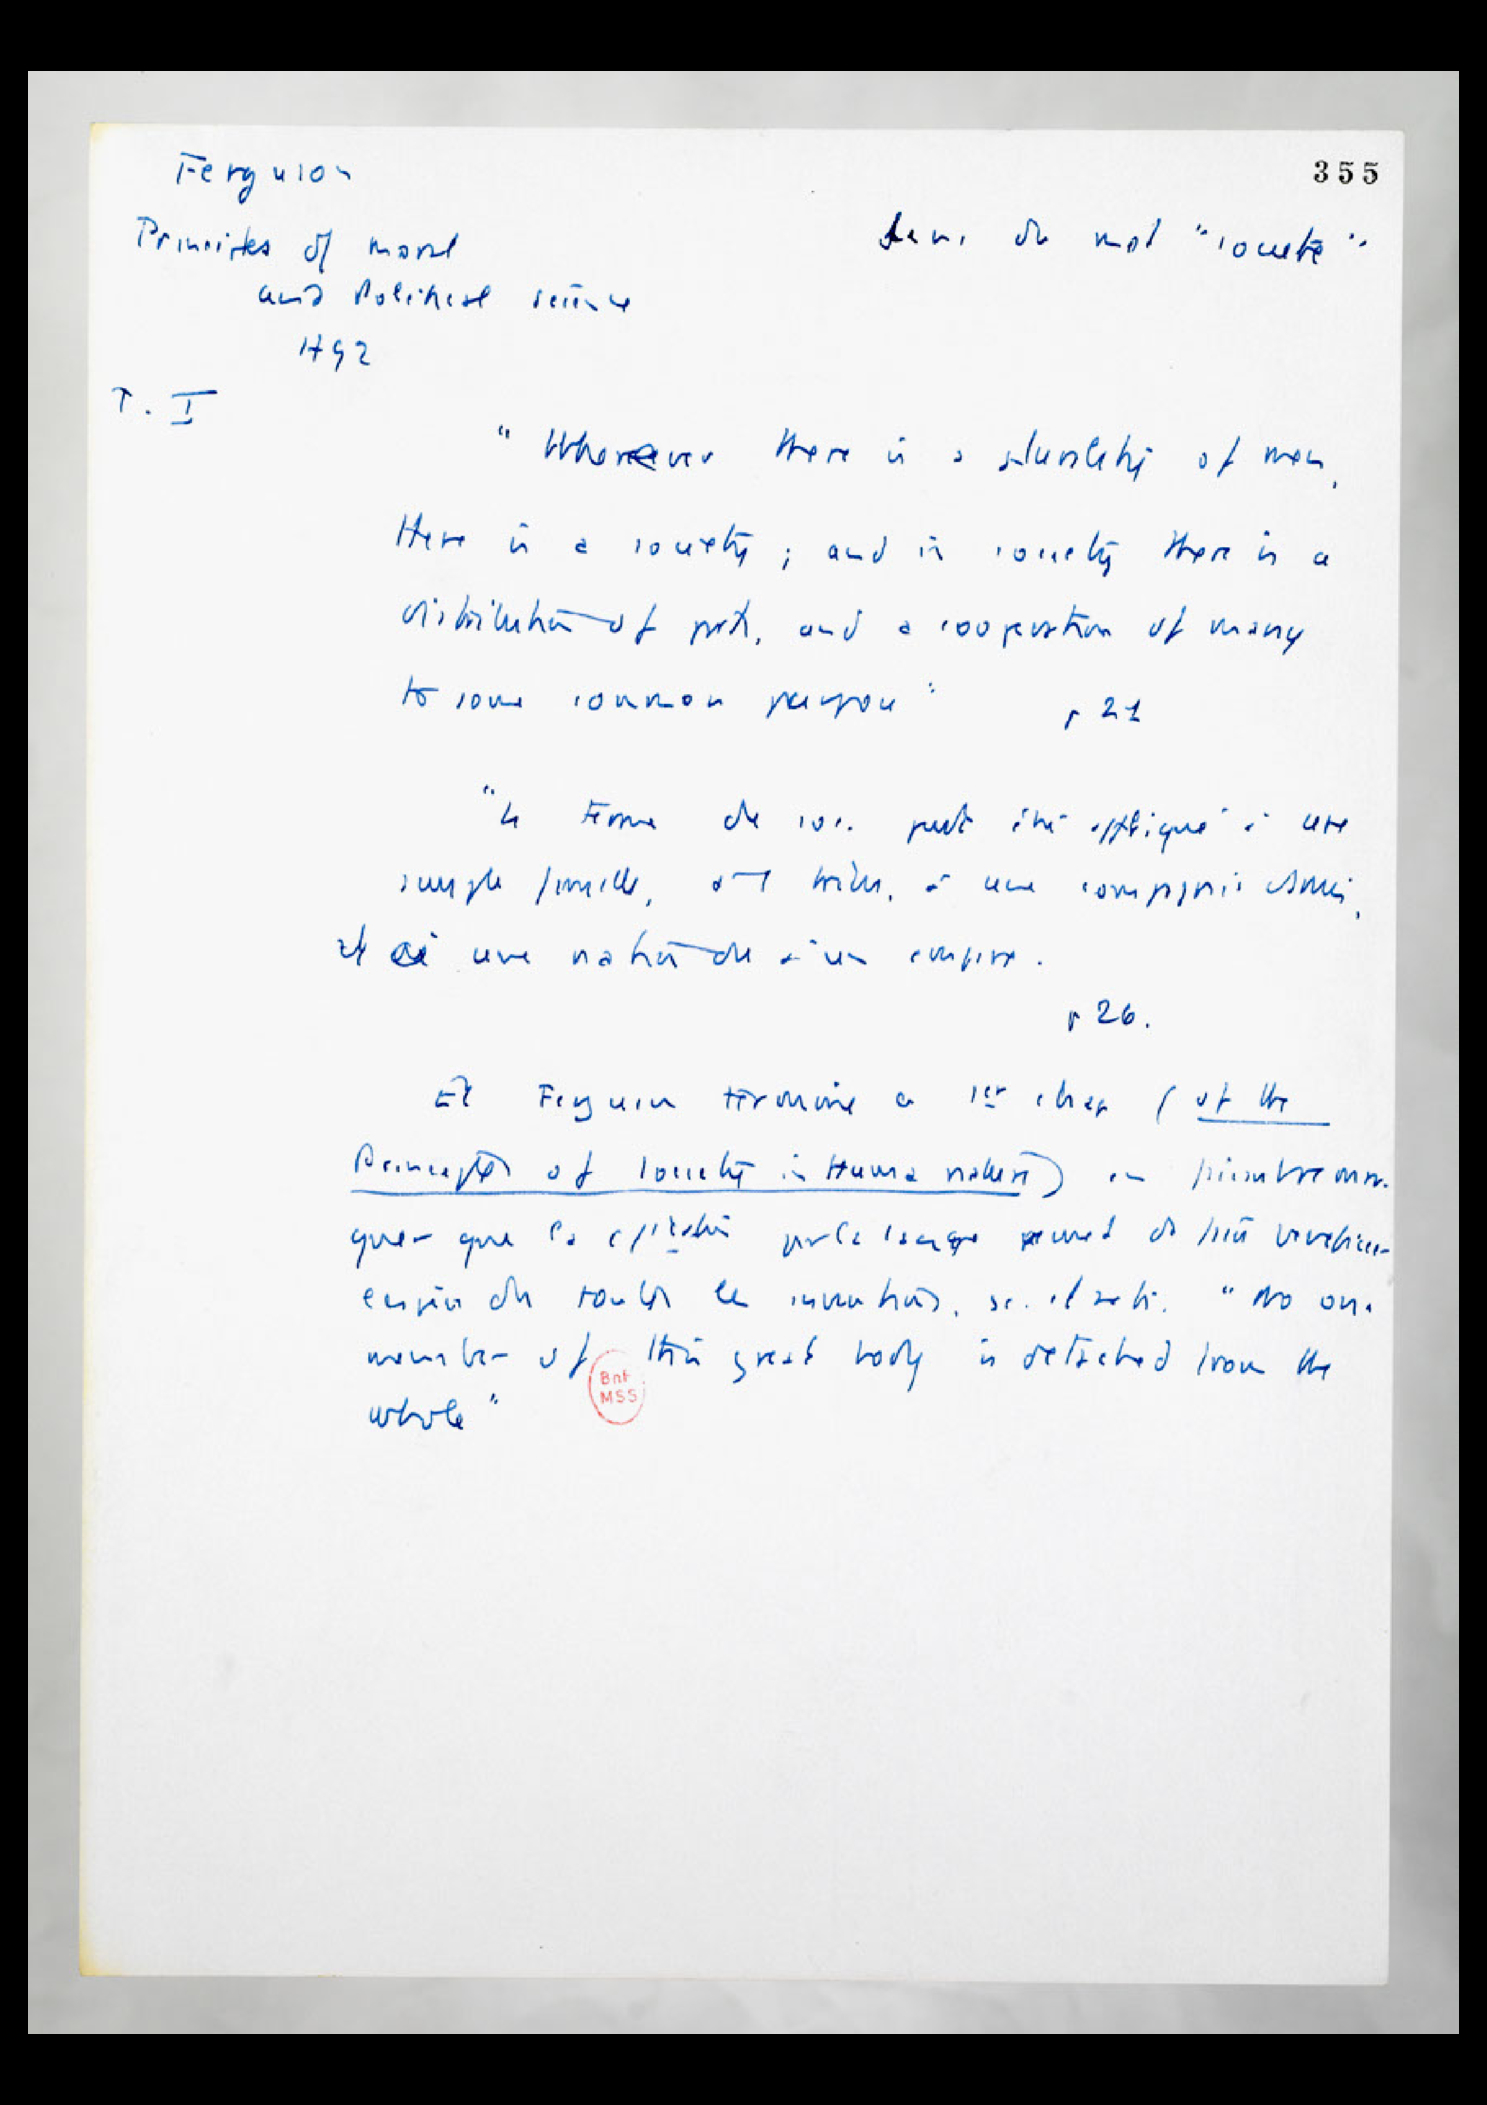 355
Ferguson
Principles of moral
and Political science
1792
Sens du mot "société"
T. I
"Wherever there is a plurality of men,
there is a society ; and in society there is a
distribution of parts, and a cooperation of many
to some common purpose"
p 21
"Le terme de soc. peut être appliqué à une
simple famille, à une compagnie d'amis,
et à une nation ou à un empire.
p 26.
Et Ferguson termine ce 1er chap (of the
Principles of society in Human nature) en
quer que la par le langage permet de
de toutes les inventions, "No one
member of this great body is detached from the
whole"
BnF
MSS